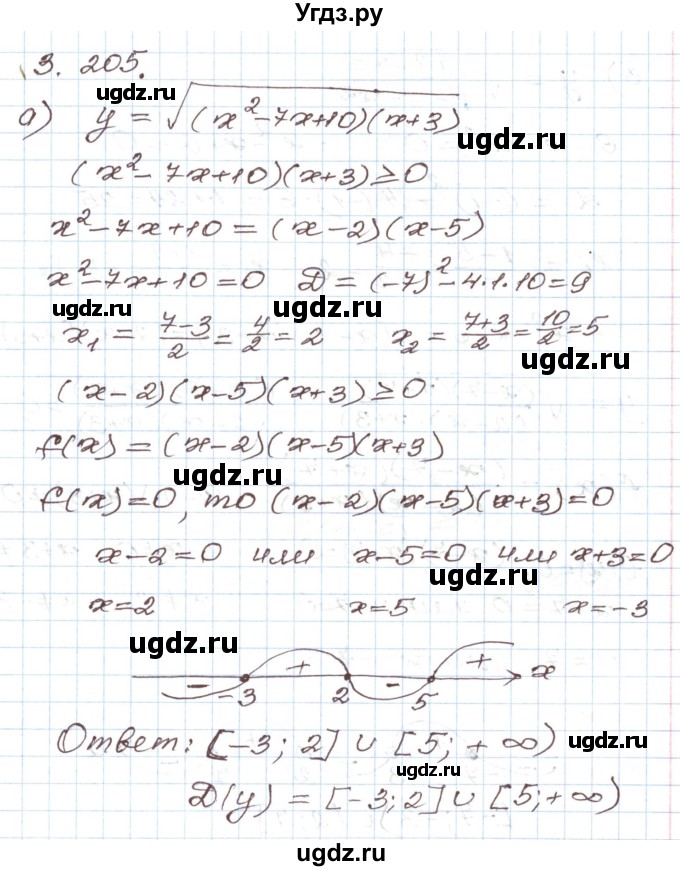 Угдз.ру
3. 205.
ugdz.ru
а) y = √(x²-7x+10)(x+3)
ugdz.ru
(x²- 7x+10)(x+3)≥0
x²-7x+10=(x-2)(x-5)
x²-7x+10=0 D=(-7)²-4·1·10=9
ugdz.ru
x₁ = (7-3)/2 = 4/2 = 2 x₂ = (7+3)/2 = 10/2 = 5
ugdz.ru
(x-2)(x-5)(x+3)≥0
f(x)=(x-2)(x-5)(x+3)
ugdz.ru
f(x)=0, то (x-2)(x-5)(x+3)=0
x-2=0 или x-5=0 или x+3=0
ugdz.ru
x=2 x=5 x=-3
ugdz.ru
- + - + x
-3 2 5
Ответ: [-3; 2] ∪ [5; +∞)
ugdz.ru
ugdz.ru
D(y) = [-3;2]∪[5;+∞)
ugdz.ru